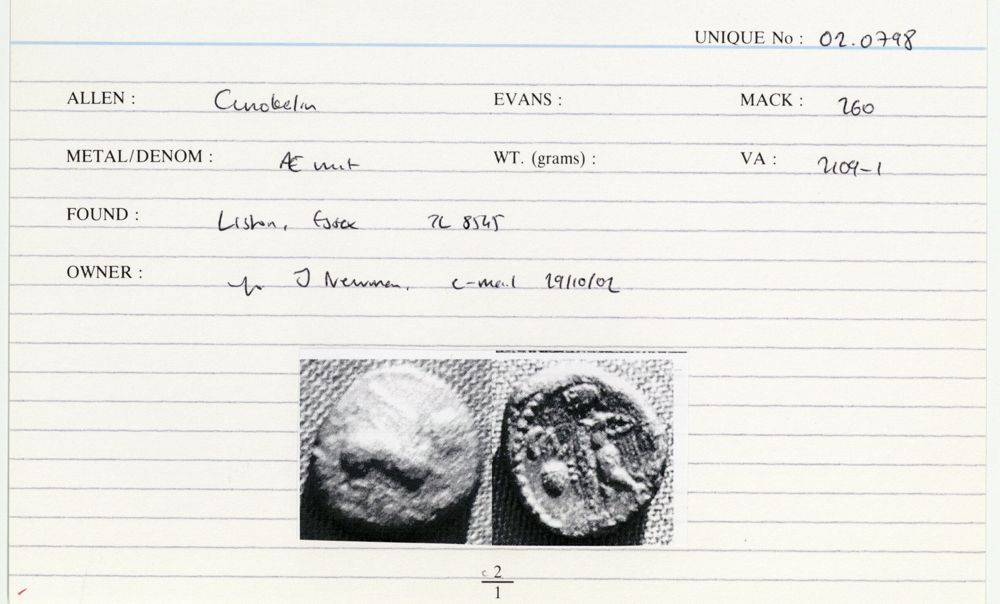 UNIQUE No : 02.0798
ALLEN : Cunobelin EVANS : MACK : 260
METAL/DENOM : Æ unit WT. (grams) : VA : 2109-1
FOUND : Liston, Essex TL 8545
OWNER : J Newman, e-mail 29/10/02
c 2
1